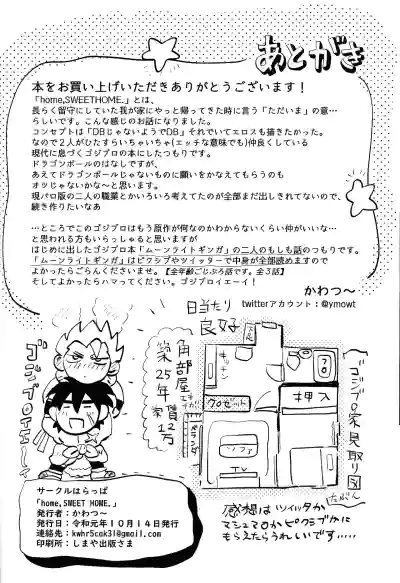 あとがき
本をお買い上げいただきありがとうございます！
「home,SWEETHOME.」とは、
長らく留守にしていた我が家にやっと帰ってきた時に言う「ただいま」の意…
らしいです。こんな感じのお話になりました。
コンセプトは「DBじゃないようでDB」それでいてエロスも描きたかった。
なので2人がひたすらいちゃいちゃ(エッチな意味でも)仲良くしている
現代に息づくゴジブロの本にしたつもりです。
ドラゴンボールのはなしですが、
あえてドラゴンボールじゃないものに願いをかなえてもらうのも
オツじゃないかな～と思います。
現パロ版の二人の職業とかいろいろ考えてたのが全部まだ出しきれてないので、
続き作りたいなあ
…ところでこのゴジブロはもう原作が何なのかわからないくらい仲がいいな…
と思われる方もいらっしゃると思いますが
はじめに出したゴジブロ本「ムーンライトギンガ」の二人のもしも話のつもりです。
「ムーンライトギンガ」はピクシブやツイッターで中身が全部読めますので
よかったらごらんくださいませ。【全年齢ごじぶろ話です。全3話】
そしてよかったらハマってください。ゴジブロイエーイ！
かわつ～
twitterアカウント：@ymowt
日当たり
良好
角部屋
築25年
家賃12万
ゴジブロイエーイ
キッチン
クロゼット
押入
ベランダ
ソファ
TV
ゴジブロ家見取り図
たぶん
感想はツイッタか
マシュマロかピクシブかに
もらえたらうれしいです……
サークルはらっぱ
「home,SWEET HOME.」
発行者：かわつ～
発行日：令和元年10月14日発行
連絡先：kwhr5cak3l@gmail.com
印刷所：しまや出版さま